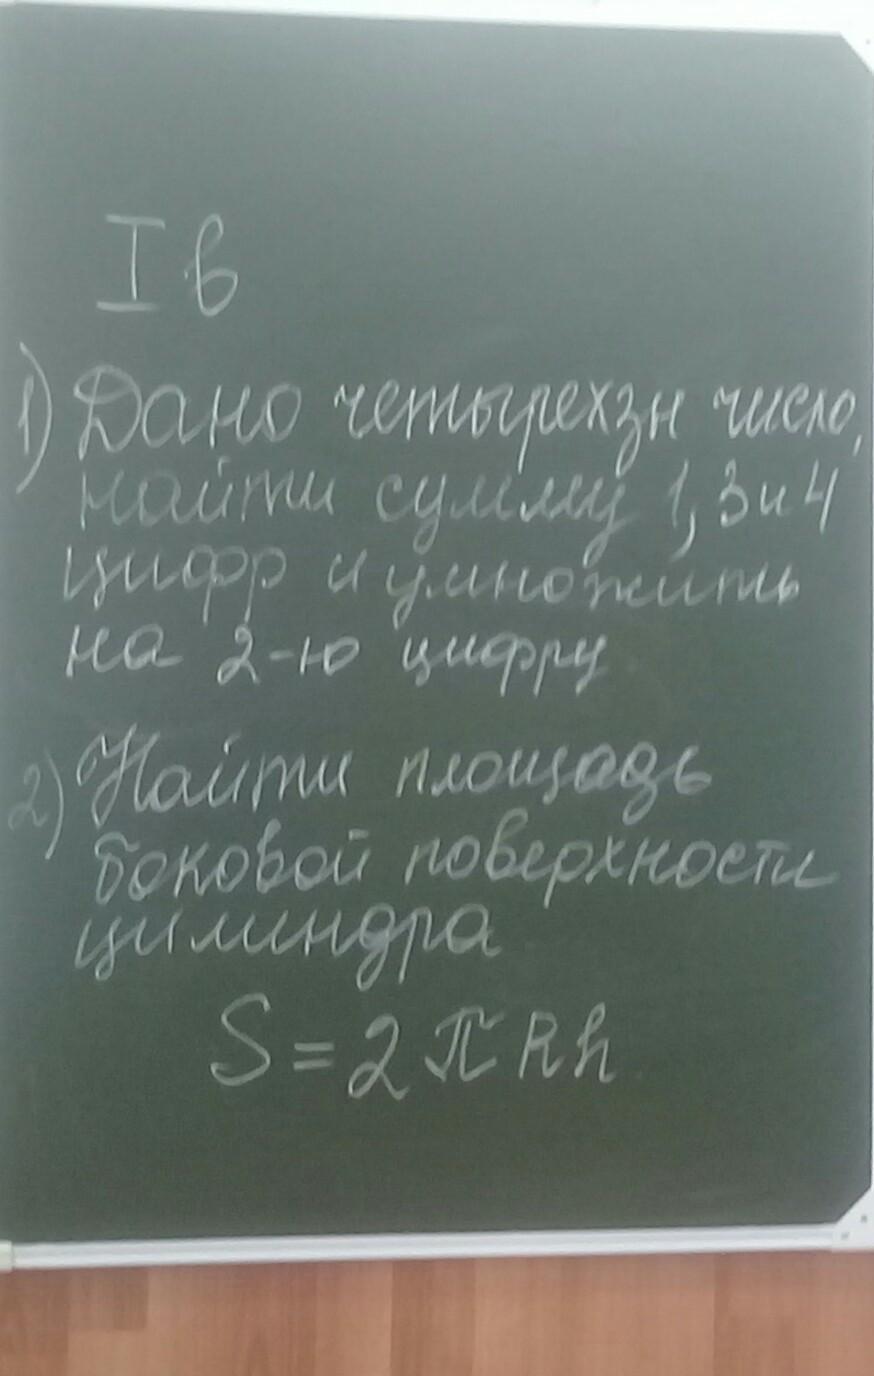 I в
1) Дано четырехзн число,
найти сумму 1, 3 и 4
цифр и умножить
на 2-ю цифру
2) Найти площадь
боковой поверхности
цилиндра
S = 2 π R h